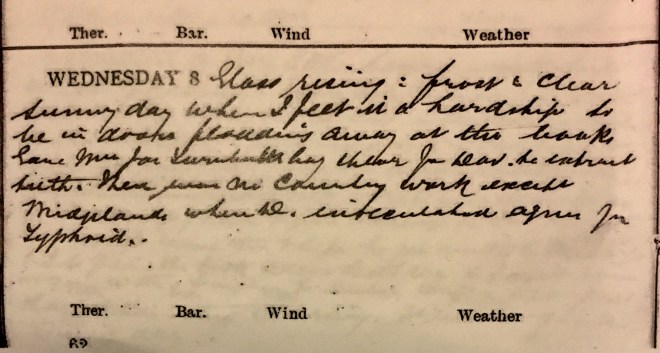 Ther. Bar. Wind Weather
WEDNESDAY 8 Glass rising : frost & clear
sunny day when I feel it a hardship to
be in doors plodding away at the books
Gave Mrs Jas hay there for Dav. to extract
teeth. There was no Country work except
Midplands when D. inoculated again for
Typhoid.
Ther. Bar. Wind Weather